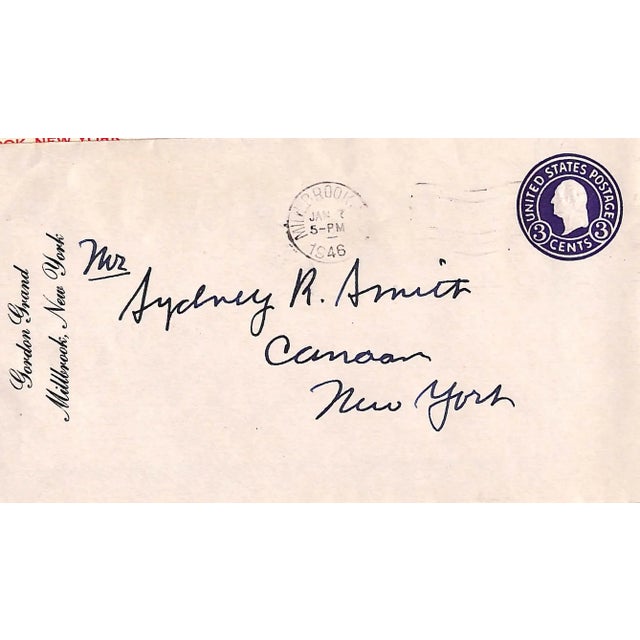 OOK NEW YORK
MILLBROOK
JAN 7
5-PM
1946
UNITED STATES POSTAGE
3 CENTS 3
Gordon Grand
Millbrook, New York
Mr
Sydney R. Smith
Canaan
New York